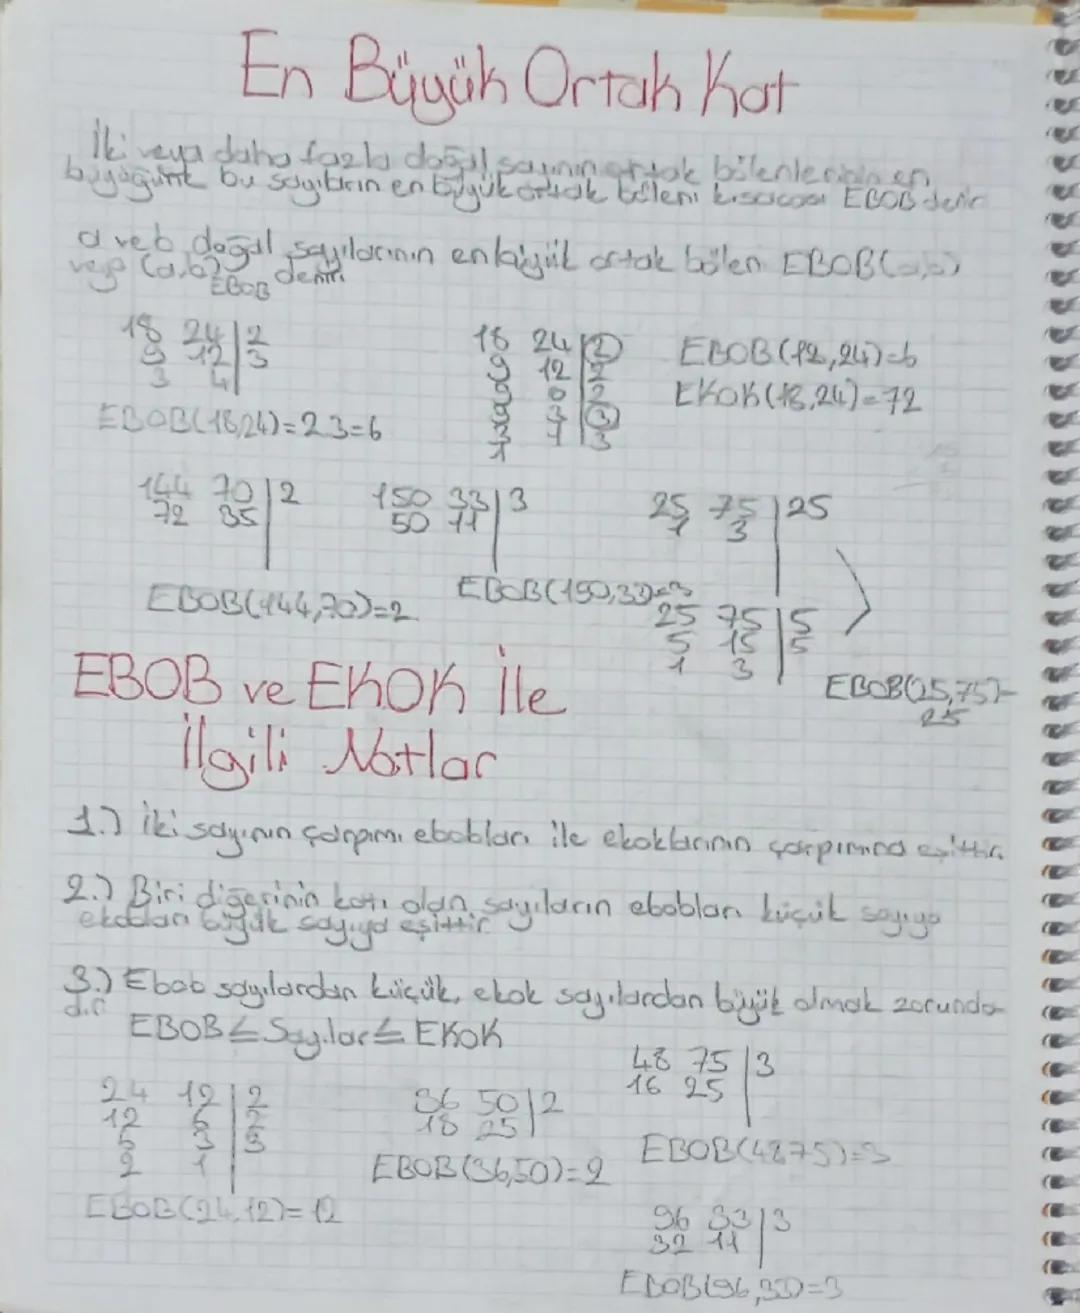 En Büyük Ortak Kat
İki veya daha fazla doğal sayının ortak bölenlerinin en
büyüğüne bu sayıların en büyük ortak böleni kısacası EBOB denir
a ve b doğal sayılarının en büyük ortak bölen EBOB(a,b)
veya (a,b)EBOB denir.
18 24 | 2
9 12 | 3
3 4
EBOB(18,24)=2.3=6
18 24 | 2
9 12 | 2
9 6 | 2
9 3 | 3
3 1 | 3
1
EBOB(12,24)=6
EKOK(18,24)=72
144 70 | 2
72 35
EBOB(144,70)=2
150 33 | 3
50 11
EBOB(150,33)=3
25 75 | 25
1 3
25 75 | 5
5 15 | 5
1 3
EBOB(25,75)=
25
EBOB ve EKOK İle
İlgili Notlar
1.) İki sayının çarpımı ebobları ile ekoklarının çarpımına eşittir.
2.) Biri diğerinin katı olan sayıların ebobları küçük sayıya
ekokları büyük sayıya eşittir
3.) Ebob sayılardan küçük, ekok sayılardan büyük olmak zorunda
dır
EBOB≤Sayılar≤EKOK
24 12 | 2
12 6 | 2
6 3 | 3
2 1
EBOB(24,12)=12
36 50 | 2
18 25
EBOB(36,50)=2
48 75 | 3
16 25
EBOB(48,75)=3
96 33 | 3
32 11
EBOB(96,33)=3